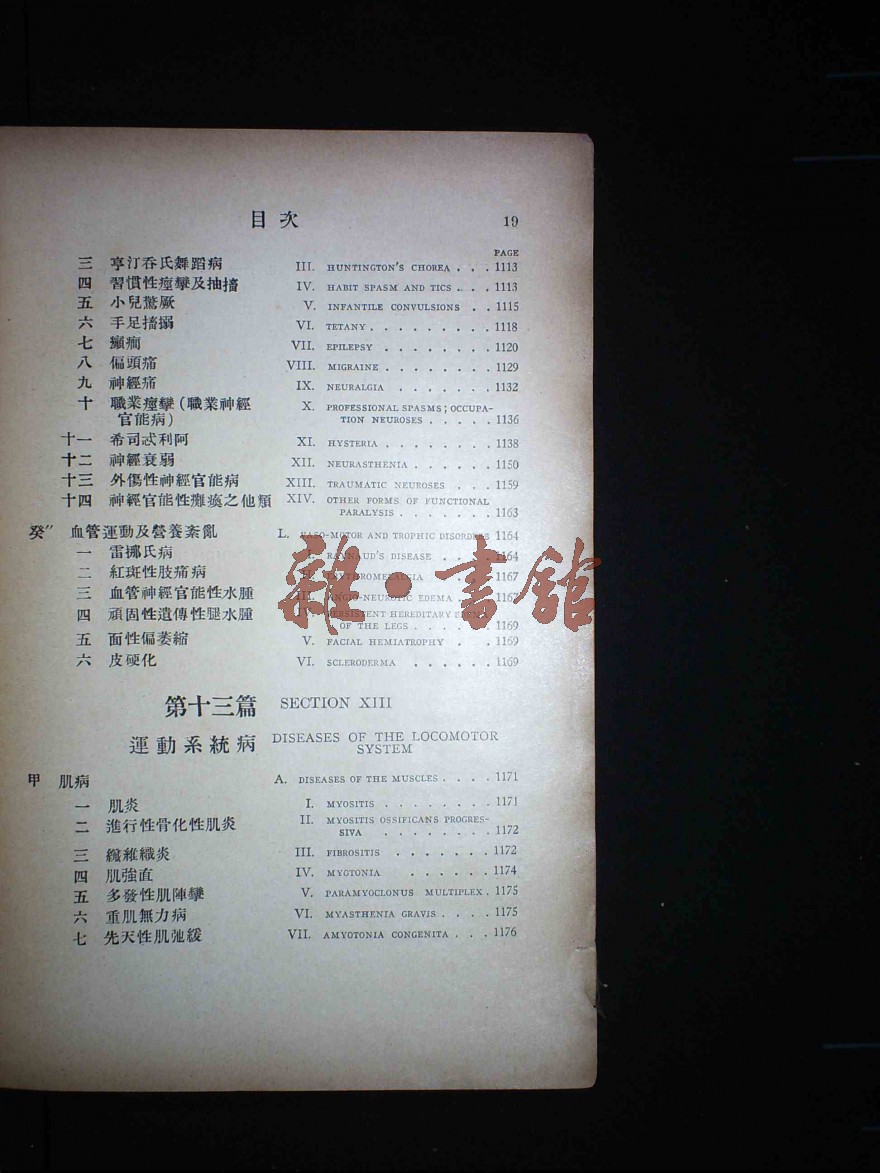 目次 19
PAGE
三 亨汀吞氏舞蹈病 III. HUNTINGTON'S CHOREA . . . 1113
四 習慣性痙攣及抽搐 IV. HABIT SPASM AND TICS . . . 1113
五 小兒驚厥 V. INFANTILE CONVULSIONS . . 1115
六 手足搐搦 VI. TETANY . . . . . . . . 1118
七 癲癇 VII. EPILEPSY . . . . . . . . 1120
八 偏頭痛 VIII. MIGRAINE . . . . . . . . 1129
九 神經痛 IX. NEURALGIA . . . . . . . 1132
十 職業痙攣(職業神經 X. PROFESSIONAL SPASMS; OCCUPA-
官能病) TION NEUROSES . . . . . 1136
十一 希司忒利阿 XI. HYSTERIA . . . . . . . . 1138
十二 神經衰弱 XII. NEURASTHENIA . . . . . . 1150
十三 外傷性神經官能病 XIII. TRAUMATIC NEUROSES . . . 1159
十四 神經官能性癱瘓之他類 XIV. OTHER FORMS OF FUNCTIONAL
PARALYSIS . . . . . . . 1163
癸″ 血管運動及營養紊亂 L. VASO-MOTOR AND TROPHIC DISORDERS 1164
一 雷挪氏病 I. RAYNAUD'S DISEASE . . . . 1164
二 紅斑性肢痛病 II. ERYTHROMELALGIA . . . . 1167
三 血管神經官能性水腫 III. ANGIO-NEUROTIC EDEMA . . . 1167
四 頑固性遺傳性腿水腫 IV. PERSISTENT HEREDITARY EDEMA
OF THE LEGS . . . . . . 1169
五 面性偏萎縮 V. FACIAL HEMIATROPHY . . . 1169
六 皮硬化 VI. SCLERODERMA . . . . . . 1169
雜·書館
第十三篇 SECTION XIII
運動系統病 DISEASES OF THE LOCOMOTOR
SYSTEM
甲 肌病 A. DISEASES OF THE MUSCLES . . . . 1171
一 肌炎 I. MYOSITIS . . . . . . . . 1171
二 進行性骨化性肌炎 II. MYOSITIS OSSIFICANS PROGRES-
SIVA . . . . . . . . 1172
三 纖維織炎 III. FIBROSITIS . . . . . . . 1172
四 肌強直 IV. MYOTONIA . . . . . . 1174
五 多發性肌陣攣 V. PARAMYOCLONUS MULTIPLEX . 1175
六 重肌無力病 VI. MYASTHENIA GRAVIS . . . . 1175
七 先天性肌弛緩 VII. AMYOTONIA CONGENITA . . . 1176